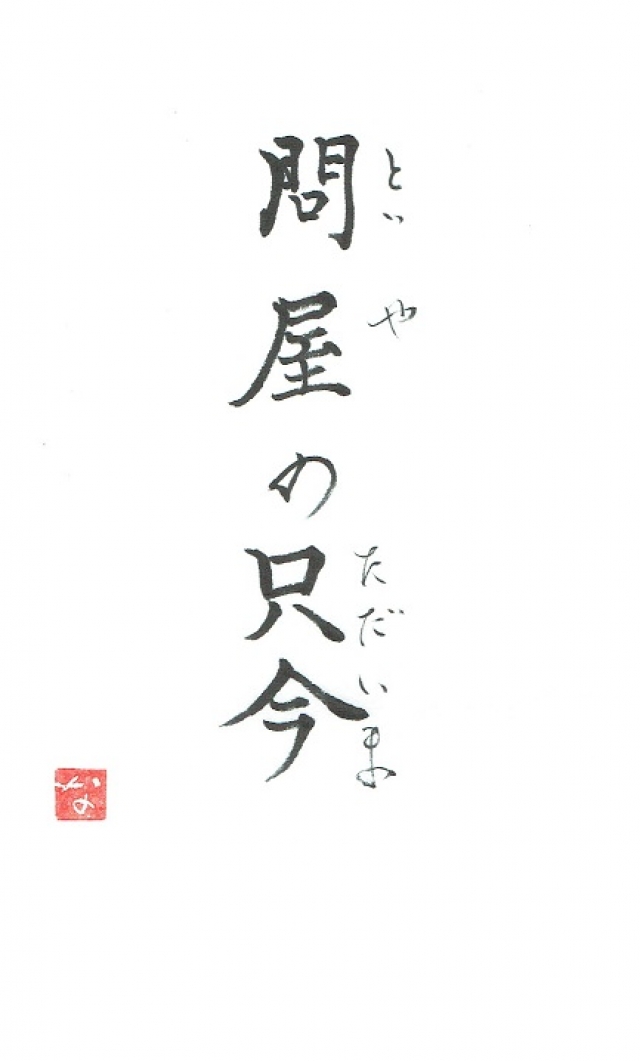 問屋の只今
といや
ただいま
な